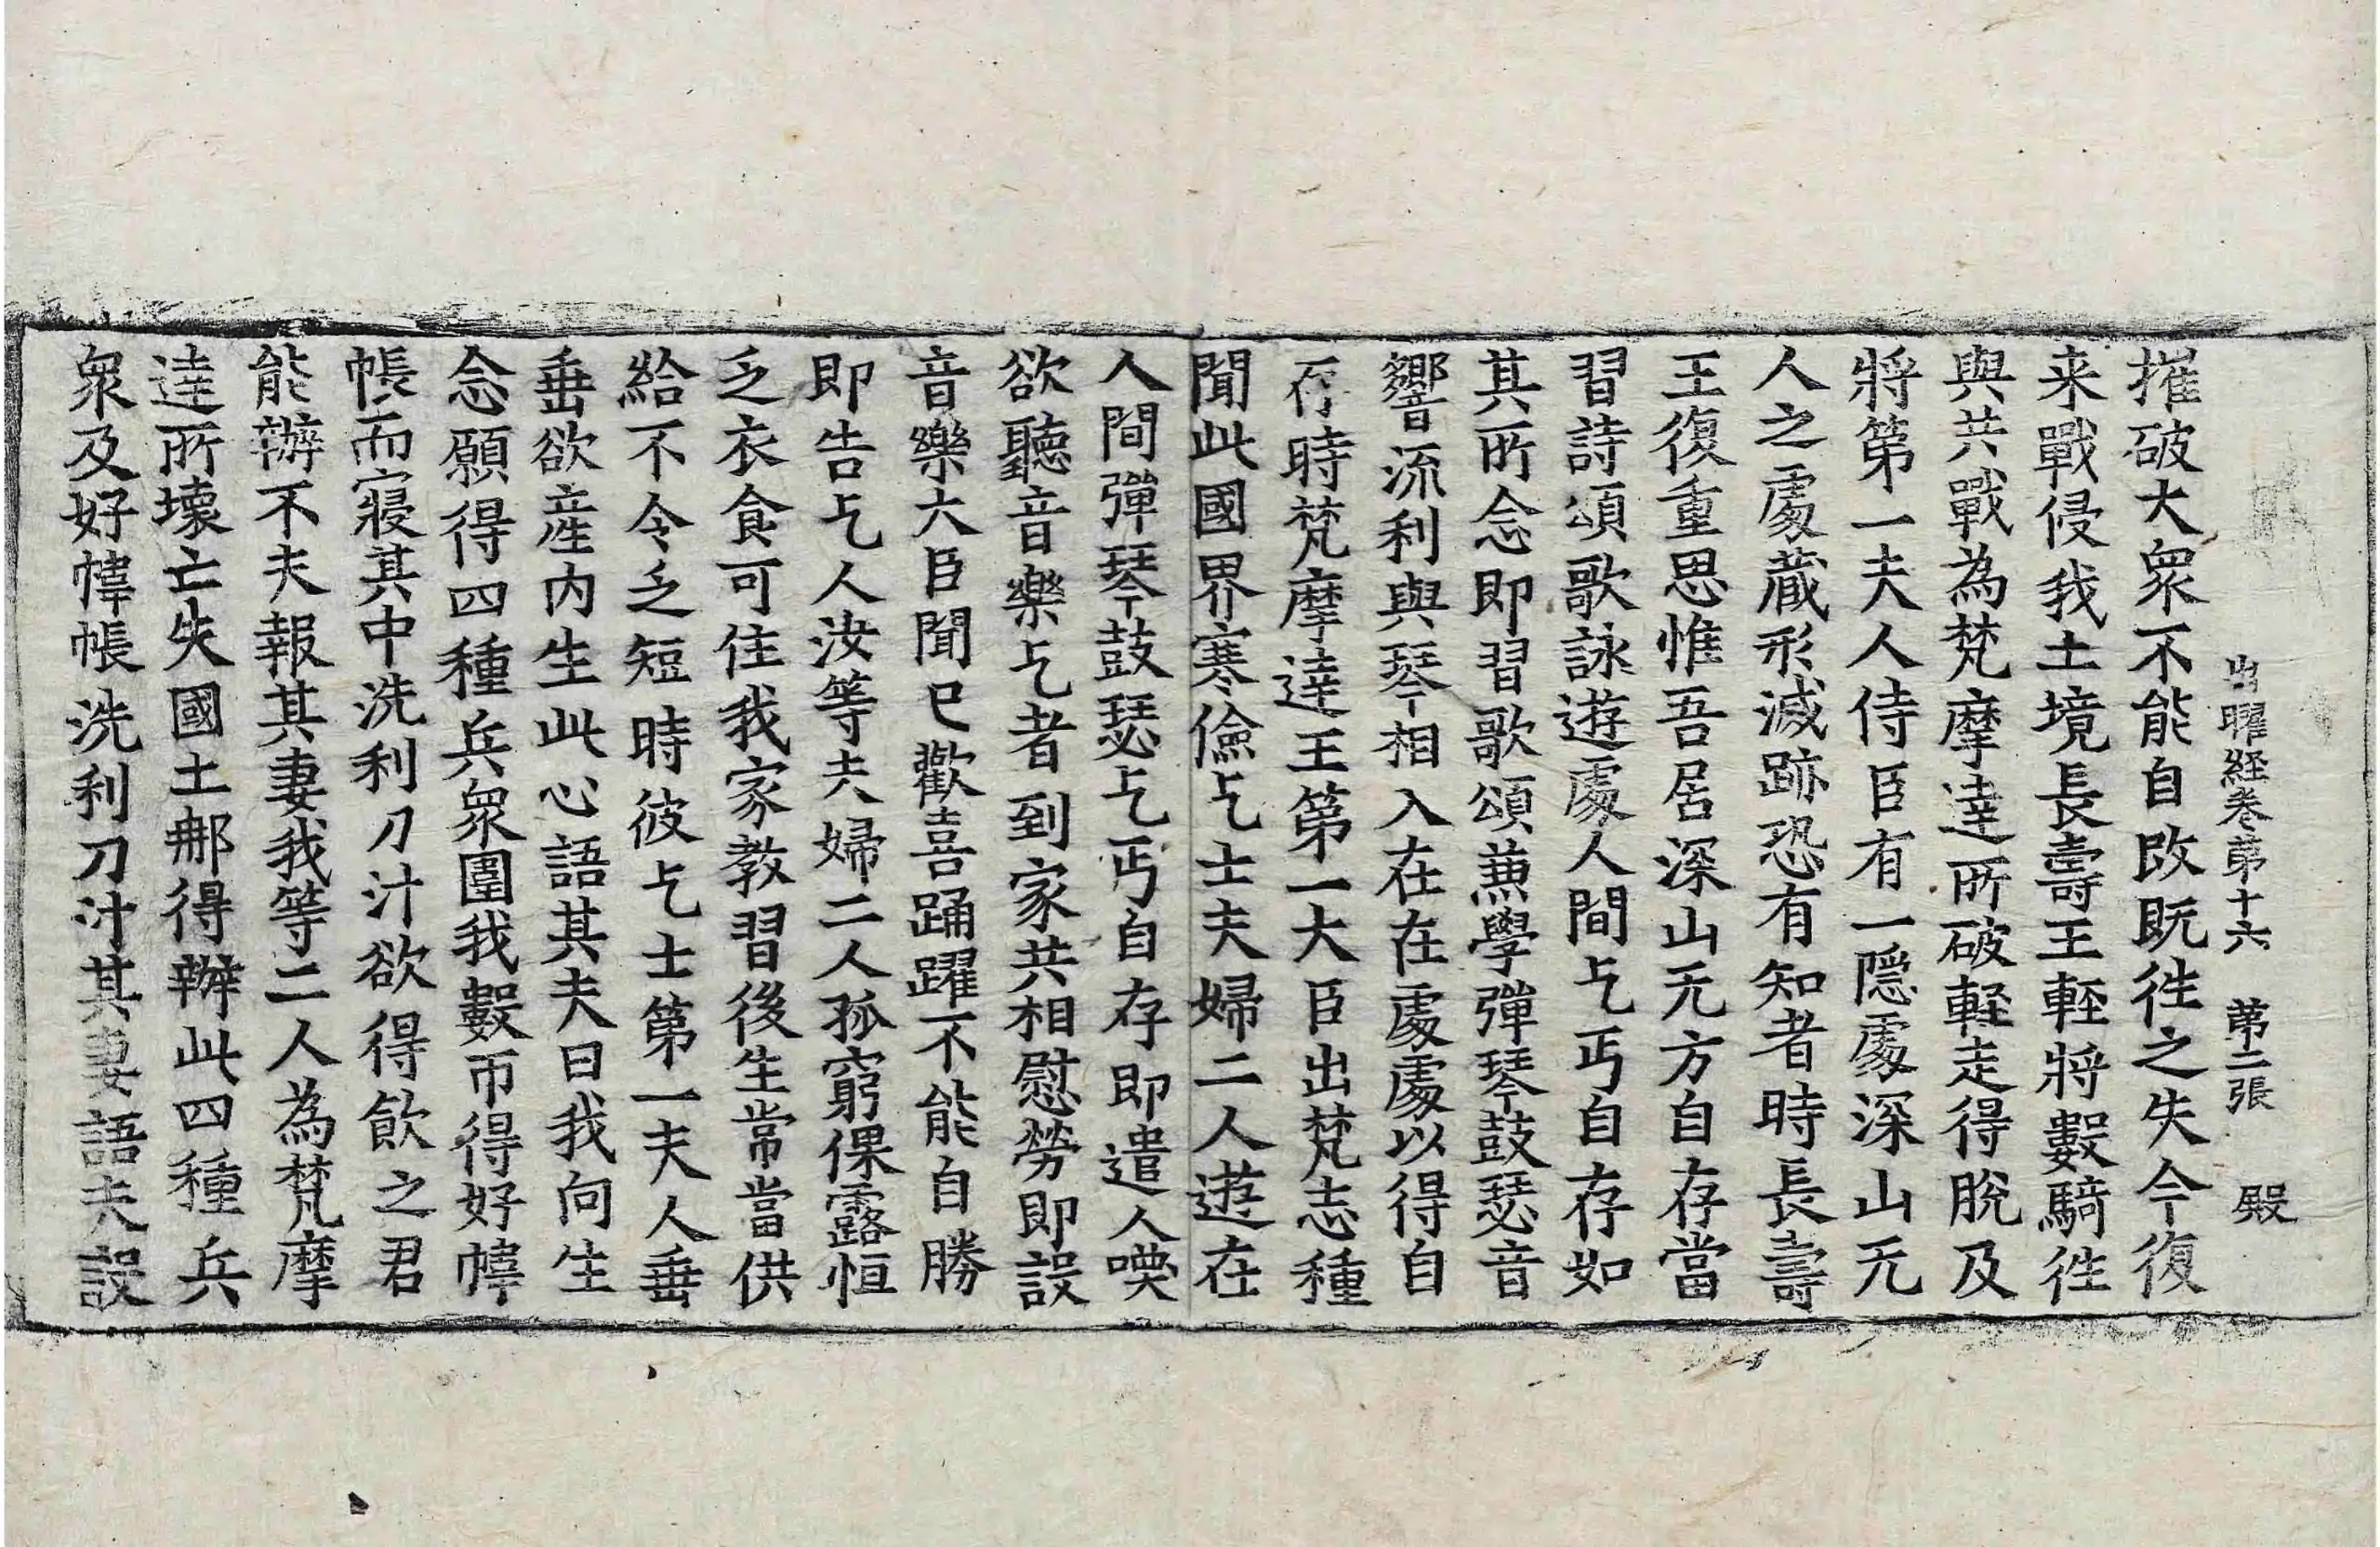 出曜経卷苐十六　苐二張　殿
摧破大衆不能自改既徃之失今復
来戰侵我土境長壽王輕將數騎徃
與共戰為梵摩達所破輕走得脫及
將第一夫人侍臣有一隱處深山无
人之處藏形滅跡恐有知者時長壽
王復重思惟吾居深山无方自存當
習詩頌歌詠遊處人間乞丐自存如
其所念即習歌頌兼學彈琴鼓瑟音
響流利與琴相入在在處處以得自
存時梵摩達王第一大臣出梵志種
聞此國界寒儉乞士夫婦二人遊在
人間彈琴鼓瑟乞丐自存即遣人喚
欲聽音樂乞者到家共相慰勞即設
音樂大臣聞已歡喜踊躍不能自勝
即告乞人汝等夫婦二人孤窮倮露恒
乏衣食可住我家教習後生常當供
給不令乏短時彼乞士第一夫人垂
垂欲產内生此心語其夫曰我向生
念願得四種兵衆圍我數帀得好幃
帳而寢其中洗利刀汁欲得飲之君
能辦不夫報其妻我等二人為梵摩
達所壞亡失國土那得辦此四種兵
衆及好幃帳洗利刀汁其妻語夫設